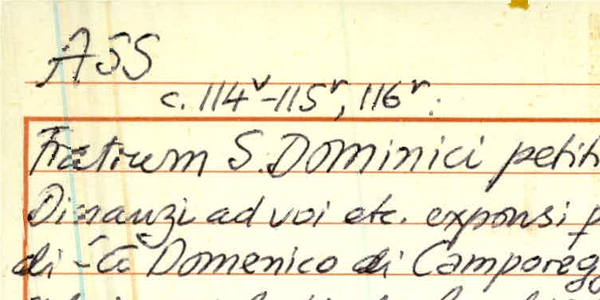 ASS
c. 114v-115r, 116r.
Fratrum S. Dominici petit
Dinanzi ad voi etc. exponsi
di Domenico di Camporeg